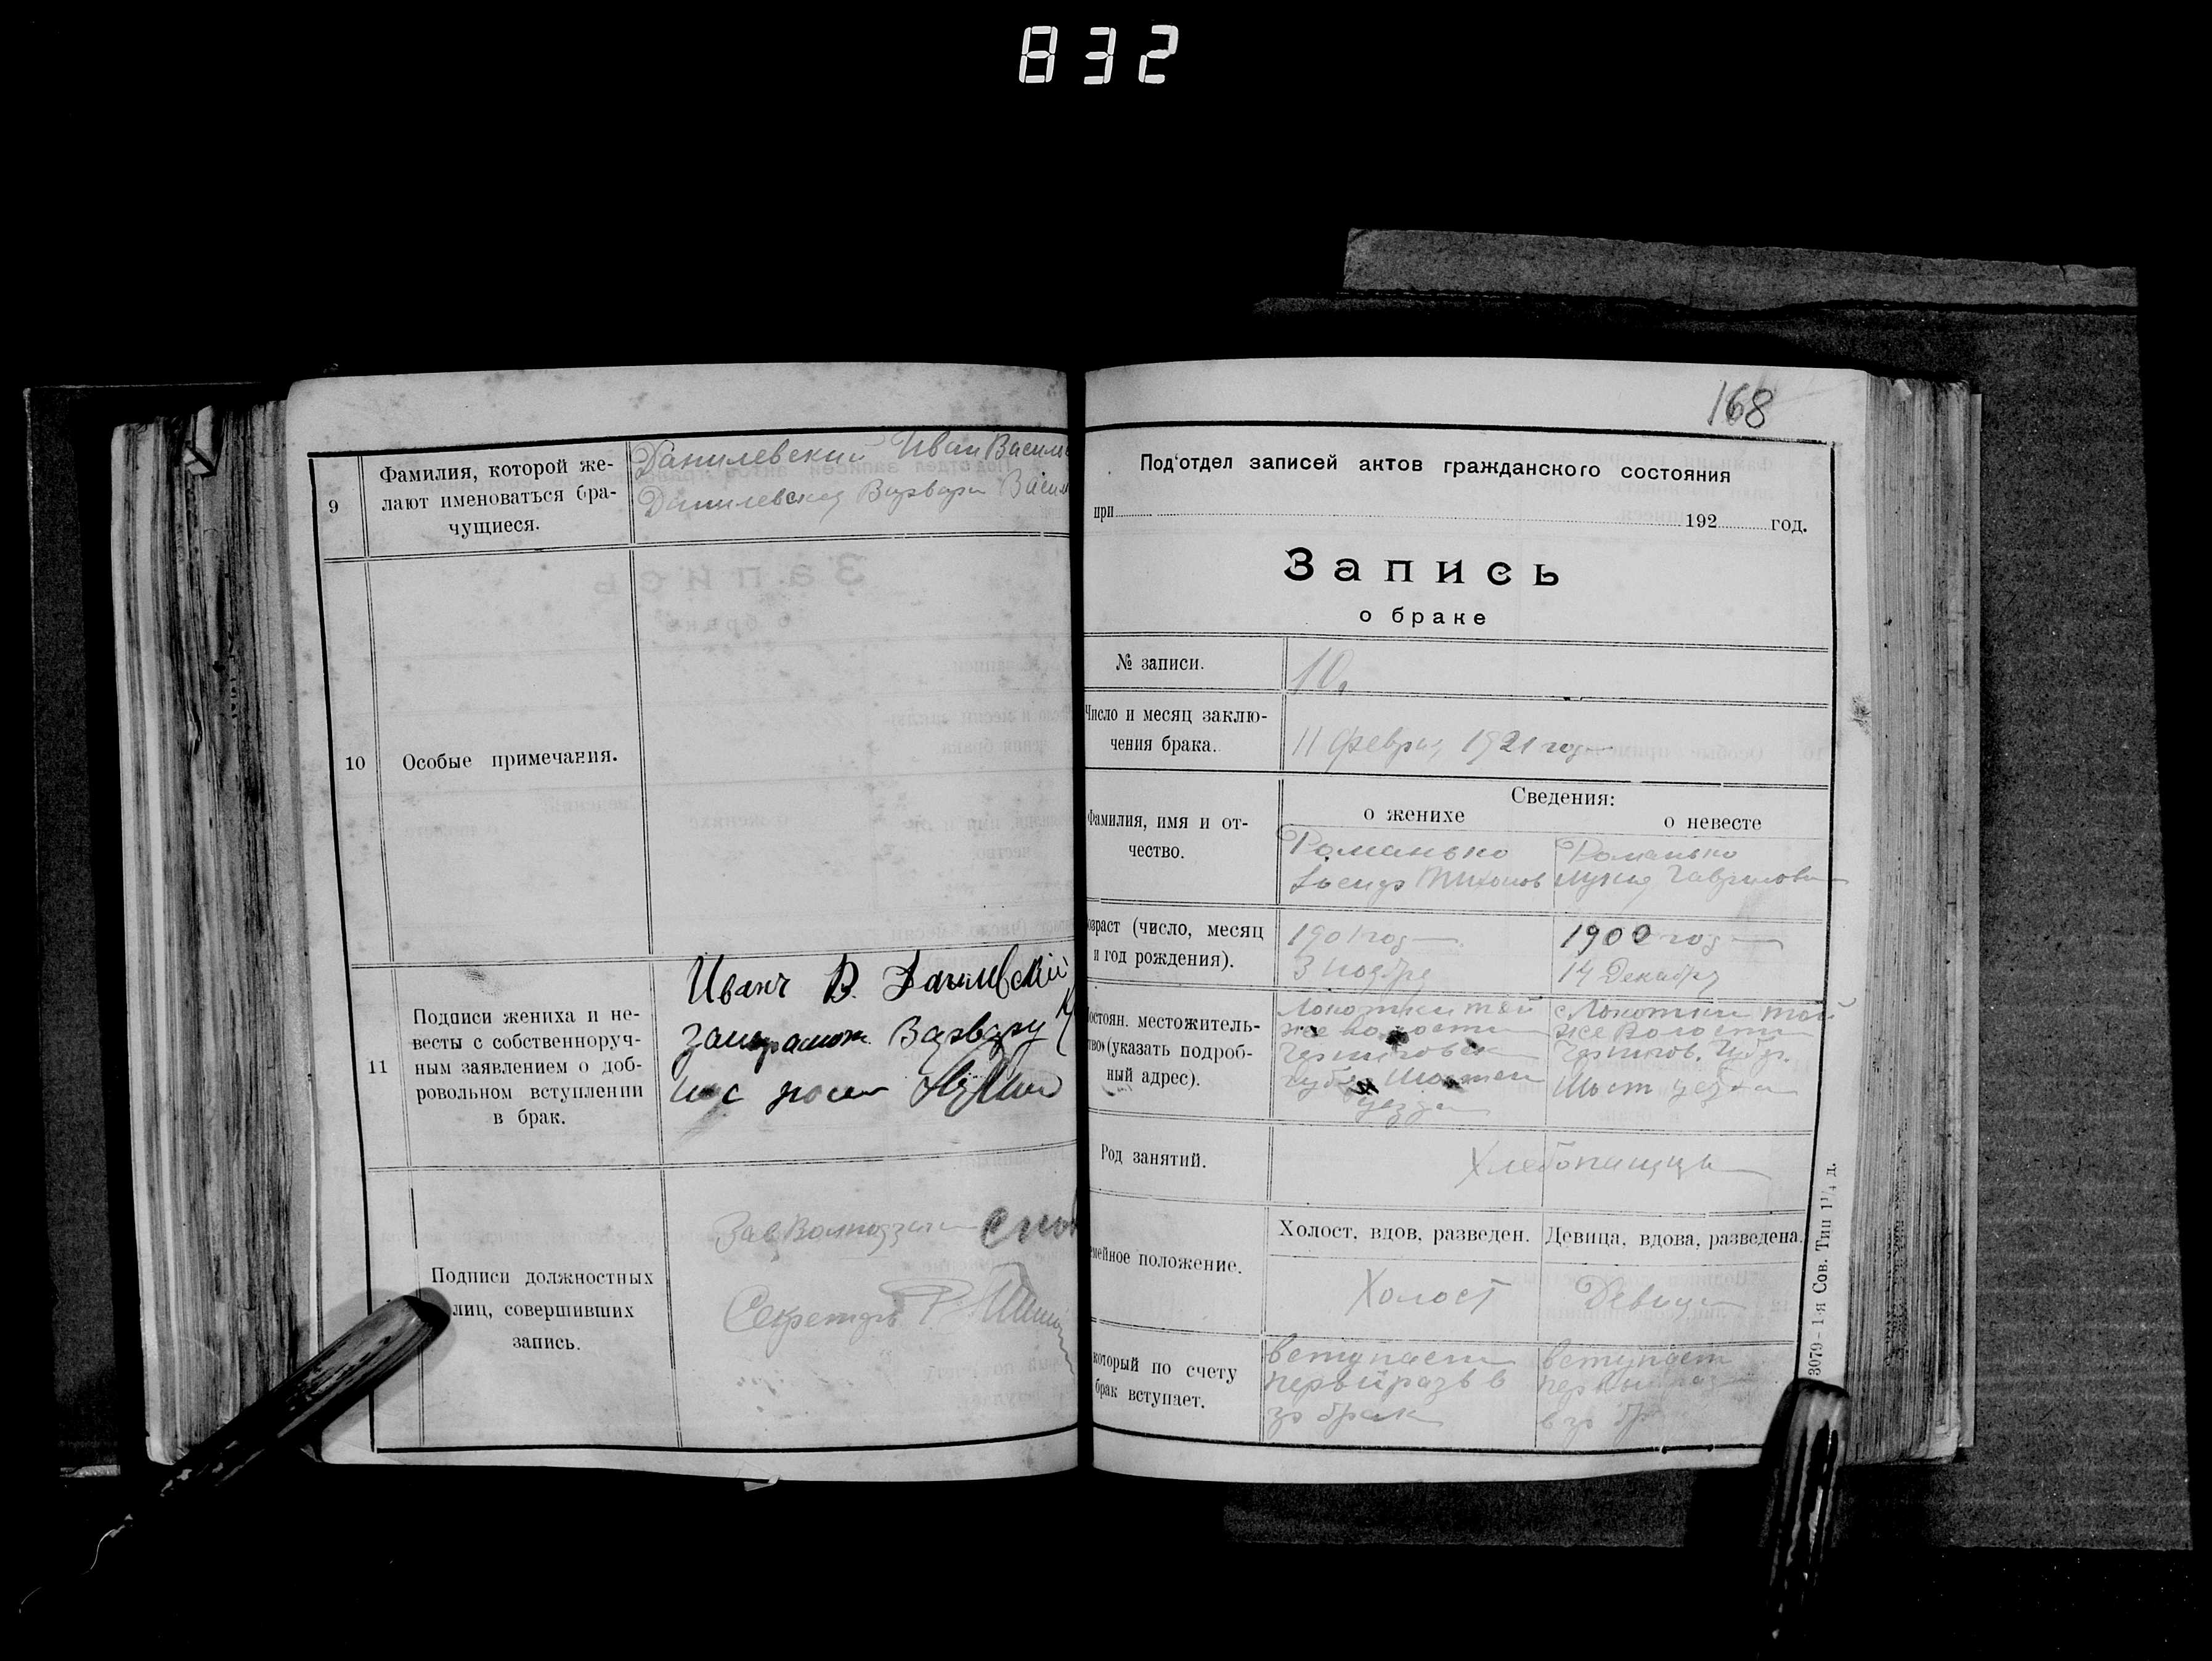 832
9
Фамилия, которой же-
лают именоваться бра-
чущиеся.
Данилевский Иван Василь
Данилевская Варвара Васил
10
Особые примечания.
11
Подписи жениха и не-
весты с собственноруч-
ным заявлением о доб-
ровольном вступлении
в брак.
Иванъ В. Данилевскій
Варвару
Подписи должностных
лиц, совершивших
запись.
Секретарь
168
Под'отдел записей актов гражданского состояния
при 192 год.
Запись
о браке
№ записи.
10.
Число и месяц заклю-
чения брака.
11 февраля 1921 год
Сведения:
о женихе
о невесте
Фамилия, имя и от-
чество.
Романько
Тихонов
Романько
Гаврилова
озраст (число, месяц
и год рождения).
1901 год
3 ноября
1900 год
14 Декабря
остоян. местожитель-
тво (указать подроб-
ный адрес).
Локотки той
же волости
Черниговск
губ.
уезда
с Локотки той
же волости
Чернигов. Губер.
Шост уезда
Род занятий.
Хлебопашцы
емейное положение.
Холост, вдов, разведен.
Девица, вдова, разведена.
Холост
Девица
который по счету
брак вступает.
вступает
первый разъ в
брак
вступает
первый раз
в
3079 – 1-я Сов. Тип 1¹/₄ д.